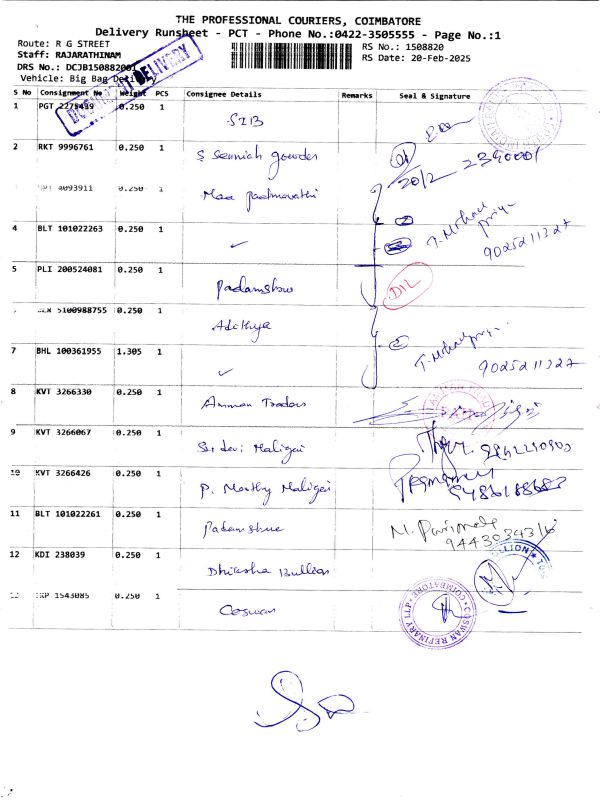 THE PROFESSIONAL COURIERS, COIMBATORE
Delivery Runsheet - PCT - Phone No.:0422-3505555 - Page No.:1
Route: R G STREET
RS No.: 1508820
Staff: RAJARATHINAM
RS Date: 20-Feb-2025
DRS No.: DCJB150882001
Vehicle: Big Bag Delivery
DELIVERY
S No Consignment No Weight PCS Consignee Details Remarks Seal & Signature
1 PGT 2275439 0.250 1 SIB
2 RKT 9996761 0.250 1 S gowder
20/2
4093911 0.250 1 Maa padmavathi
4 BLT 101022263 0.250 1 ✓
9025211327
5 PLI 200524081 0.250 1 Padamshree
DIL
5100988755 0.250 1 Adithya
7 BHL 100361955 1.305 1 ✓
9025211327
8 KVT 3266330 0.250 1 Amman Traders
9 KVT 3266067 0.250 1 Sri devi Maligai
10 KVT 3266426 0.250 1 P. Moorthy Maligai
11 BLT 101022261 0.250 1 Padamshree
12 KDI 238039 0.250 1 Dhiksha Bullion
BULLION
1543085 0.250 1 Coswan
COSWAN REFINARY LLP
COIMBATORE